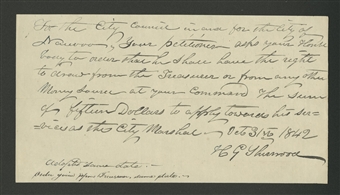 To the City Council in and for the City of
Nauvoo, Your petitioner asks your Honor
body to order that he shall have the right
to draw from the Treasurer or from any other
Money source at your Command The sum
of fifteen Dollars to apply towards his ser-
vices as this City Marshal. Oct 31st 1842
H G Sherwood
Adopted same date.